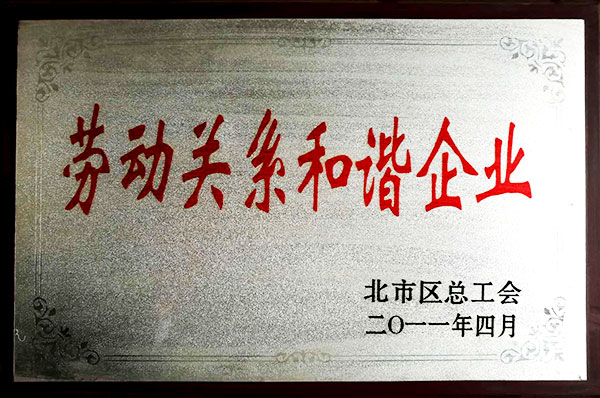 劳动关系和谐企业
北市区总工会
二〇一一年四月